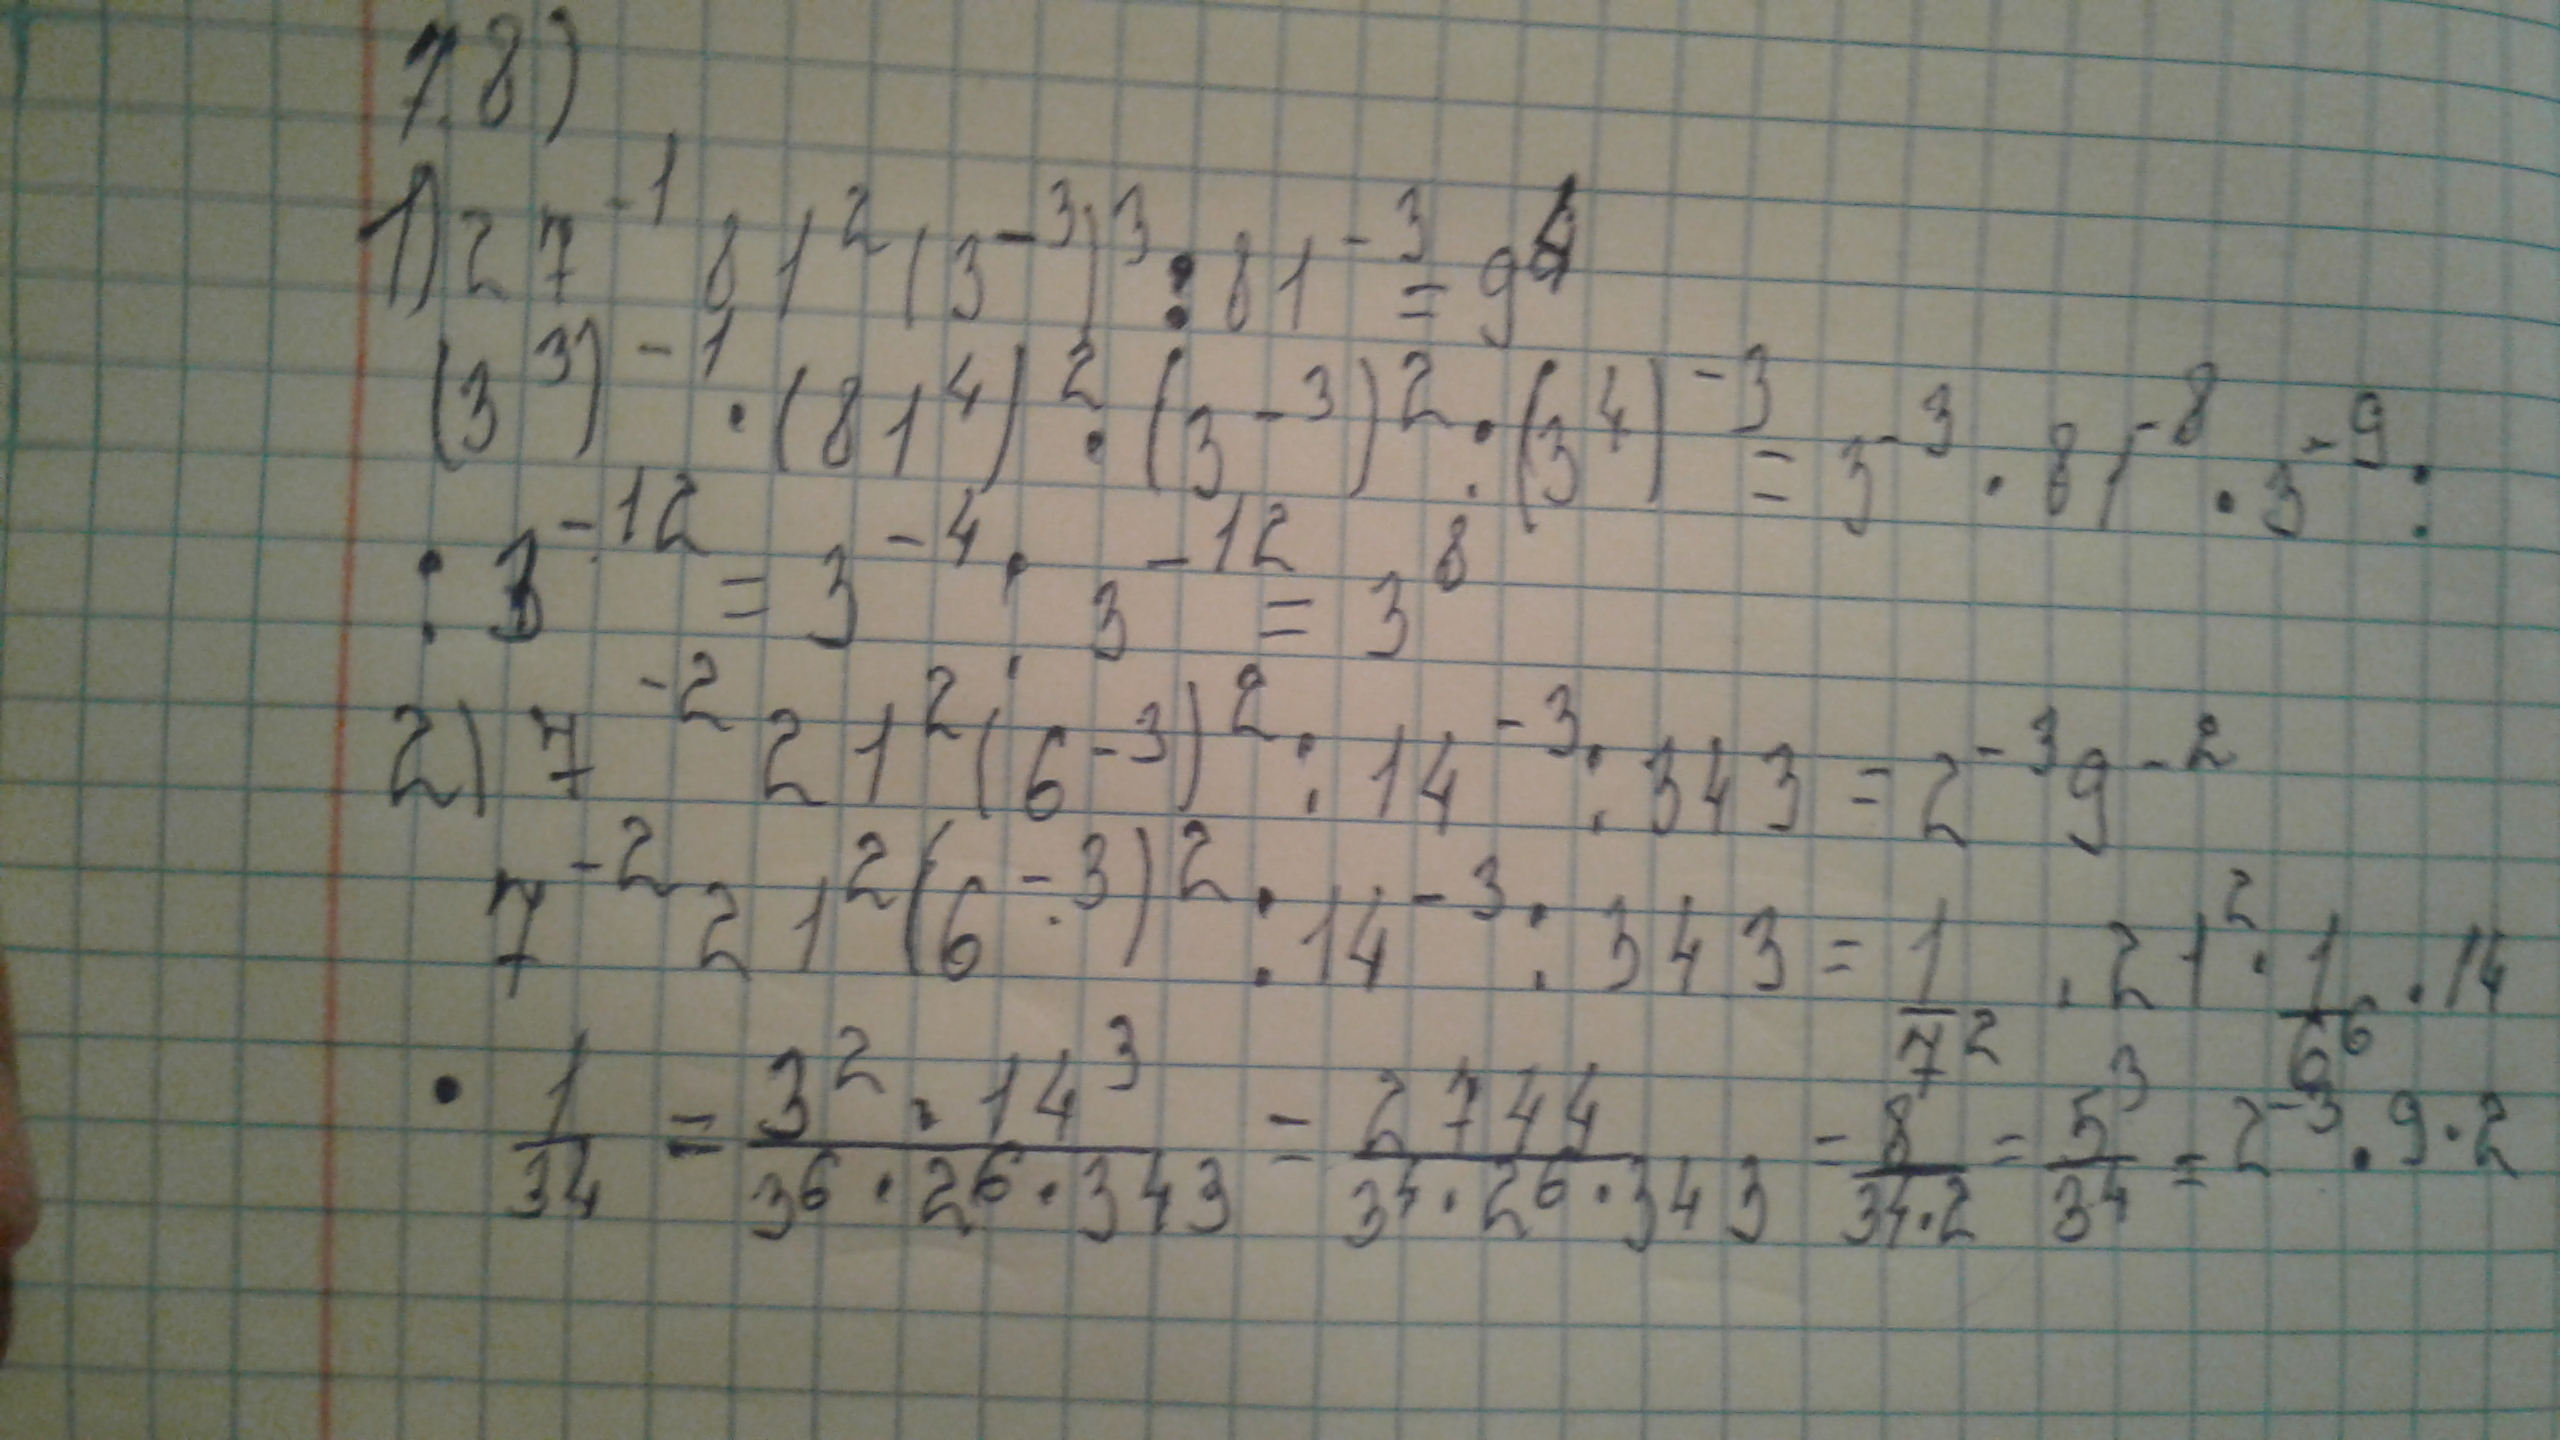 7.8)
1) 27^-1 81^2 (3^-3)^3 : 81^-3 = 9^4
(3^3)^-1 · (81^4)^2 · (3^-3)^2 : (3^4)^-3 = 3^-3 · 81^-8 · 3^-9 :
: 3^-12 = 3^-4 : 3^-12 = 3^8
2) 7^-2 21^2 (6^-3)^2 : 14^-3 : 343 = 2^-3 9^-2
7^-2 21^2 (6^-3)^2 : 14^-3 : 343 = 1/7^2 · 21^2 · 1/6^6 · 14^3
· 1/34 = 3^2 · 14^3/3^6 · 2^6 · 343 = 2744/3^4 · 2^6 · 343 = 8/34 · 2 = 5/34 = 2^-3 · 9 · 2